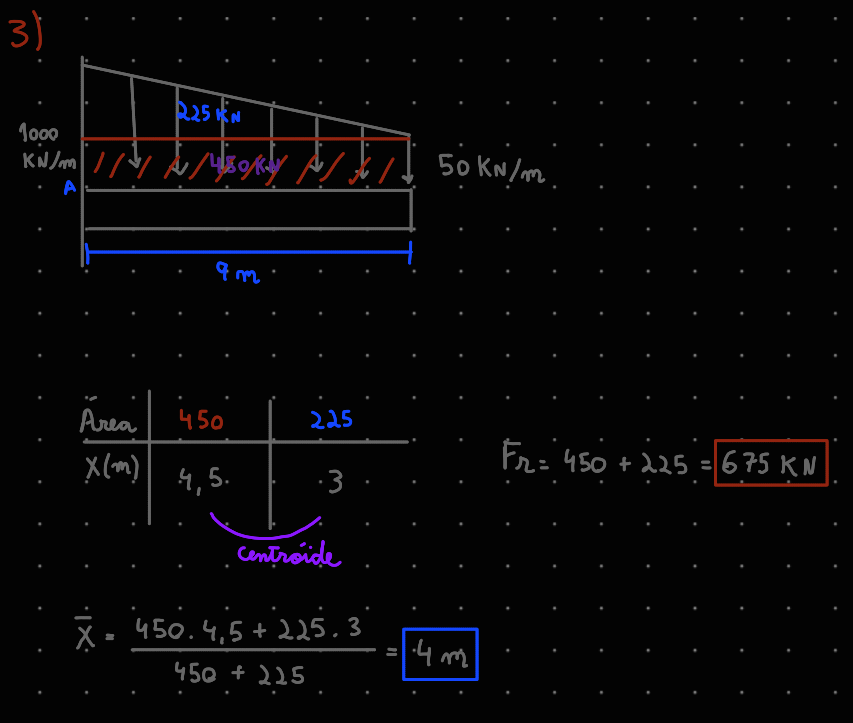 3)
225 KN
1000
KN/m
450 KN
50 KN/m
A
9 m
Área 450 225
X(m) 4,5 3
centróide
Fr = 450 + 225 = 675 KN
X̅ = 450 . 4,5 + 225 . 3 = 4 m
450 + 225